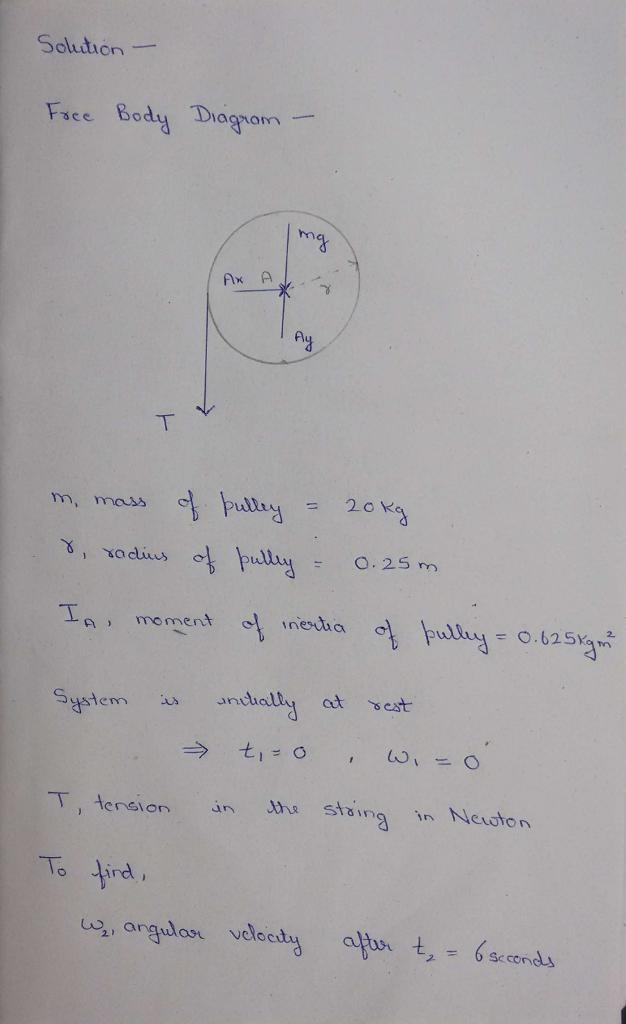 Solution —
Free Body Diagram —
mg
Ax A
r
Ay
T
m, mass of pulley = 20 kg
r, radius of pully = 0.25 m
I_A, moment of inertia of pulley = 0.625 kgm²
System is initially at rest
⇒ t₁ = 0 , ω₁ = 0
T, tension in the string in Newton
To find,
ω₂, angular velocity after t₂ = 6 seconds